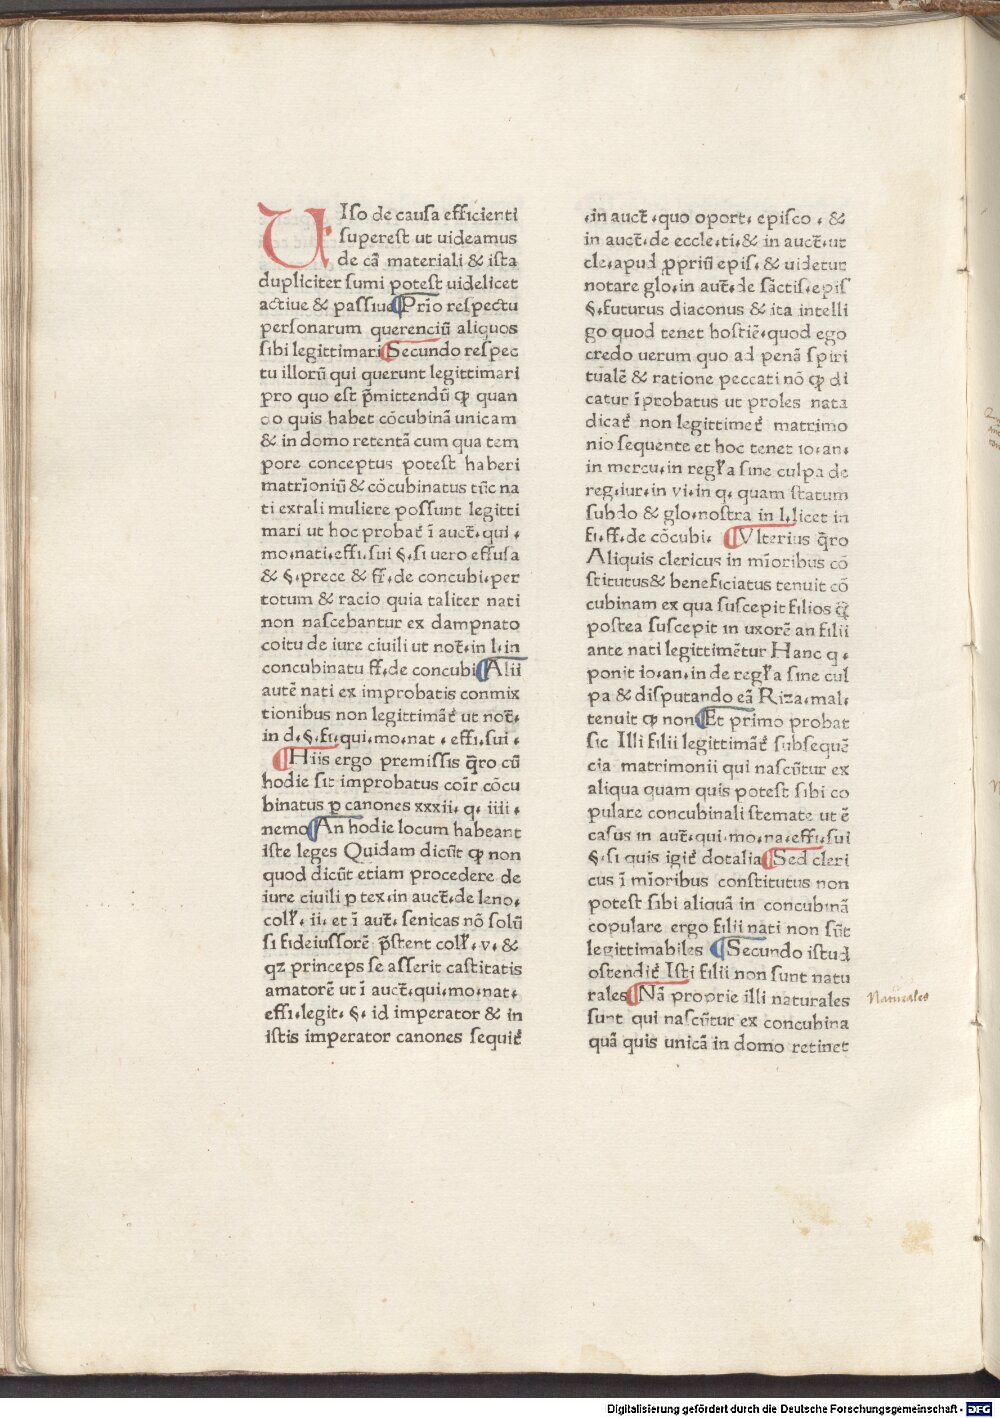 UIso de causa efficienti
superest ut uideamus
de cā materiali & ista
dupliciter sumi potest uidelicet
actiue & passiue ¶ Prīo respectu
personarum querenciū aliquos
sibi legittimari ¶ Secundo respec
tu illorū qui querunt legittimari
pro quo est p̄mittendū ꝙ quan
do quis habet cōcubinā unicam
& in domo retentā cum qua tem
pore conceptus potest haberi
matrīoniū & cōcubinatus tūc na
ti ex tali muliere possunt legitti
mari ut hoc probat᷑ ī auct̄. qui.
mo.nati.effi.sui §.si uero effusa
& §.prece & ff.de concubi.per
totum & racio quia taliter nati
non nascebantur ex dampnato
coitu de iure ciuili ut not̄.in l.in
concubinatu ff.de concubi ¶ Alii
autē nati ex improbatis conmix
tionibus non legittimāt᷑ ut not̄.
in d.§.fi.qui.mo.nat.effi.sui.
¶ Hiis ergo premissis q̄ro cū
hodie sit improbatus coīr cōcu
binatus ꝑ canones xxxii. q. iiii.
nemo ¶ An hodie locum habeant
iste leges Quidam dicūt ꝙ non
quod dicūt etiam procedere de
iure ciuili p tex.in auct̄.de leno.
coll'. ii. et ī aut̄. senicas nō solū
si fideiussorē p̄stent coll'. v. &
qz princeps se asserit castitatis
amatorē ut ī auct̄.qui.mo.nat.
effi.legit. §. id imperator & in
istis imperator canones sequit᷑
.in auct̄.quo oport. episco. &
in auct̄.de eccle.ti.& in auct̄.ut
cle.apud ꝓpriū epis. & uidetur
notare glo.in aut̄.de sāctis.epis̄
§.futurus diaconus & ita intelli
go quod tenet hostiē.quod ego
credo uerum quo ad penā spiri
tualē & ratione peccati nō ꝙ di
catur īprobatus ut proles nata
dicat᷑ non legittimet᷑ matrimo
nio sequente et hoc tenet io.an.
in mercu.in regl'a sine culpa de
reg.iur.in vi.in q. quam statum
subdo & glo.nostra in l.licet in
fi.ff.de cōcubi. ¶ Vlterius q̄ro
Aliquis clericus in mīoribus cō
stitutus& beneficiatus tenuit cō
cubinam ex qua suscepit filios q̄
postea suscepit in uxorē an filii
ante nati legittimētur Hanc q.
ponit io.an.in de regl'a sine cul
pa & disputando eā Riza.mal.
tenuit ꝙ non ¶ Et primo probat
sic Illi filii legittimāt᷑ subsequē
cia matrimonii qui nascūtur ex
aliqua quam quis potest sibi co
pulare concubinali stemate ut ē
casus in aut̄.qui.mo.na.effi.sui
§.si quis igit᷑ dotalia ¶ Sed cleri
cus ī mīoribus constitutus non
potest sibi aliquā in concubinā
copulare ergo filii nati non sūt
legittimabiles ¶ Secundo istud
ostendit᷑ Isti filii non sunt natu
rales ¶ Nā proprie illi naturales
sunt qui nascūtur ex concubina
quā quis unicā in domo retinet
Naturales
Digitalisierung gefördert durch die Deutsche Forschungsgemeinschaft - DFG